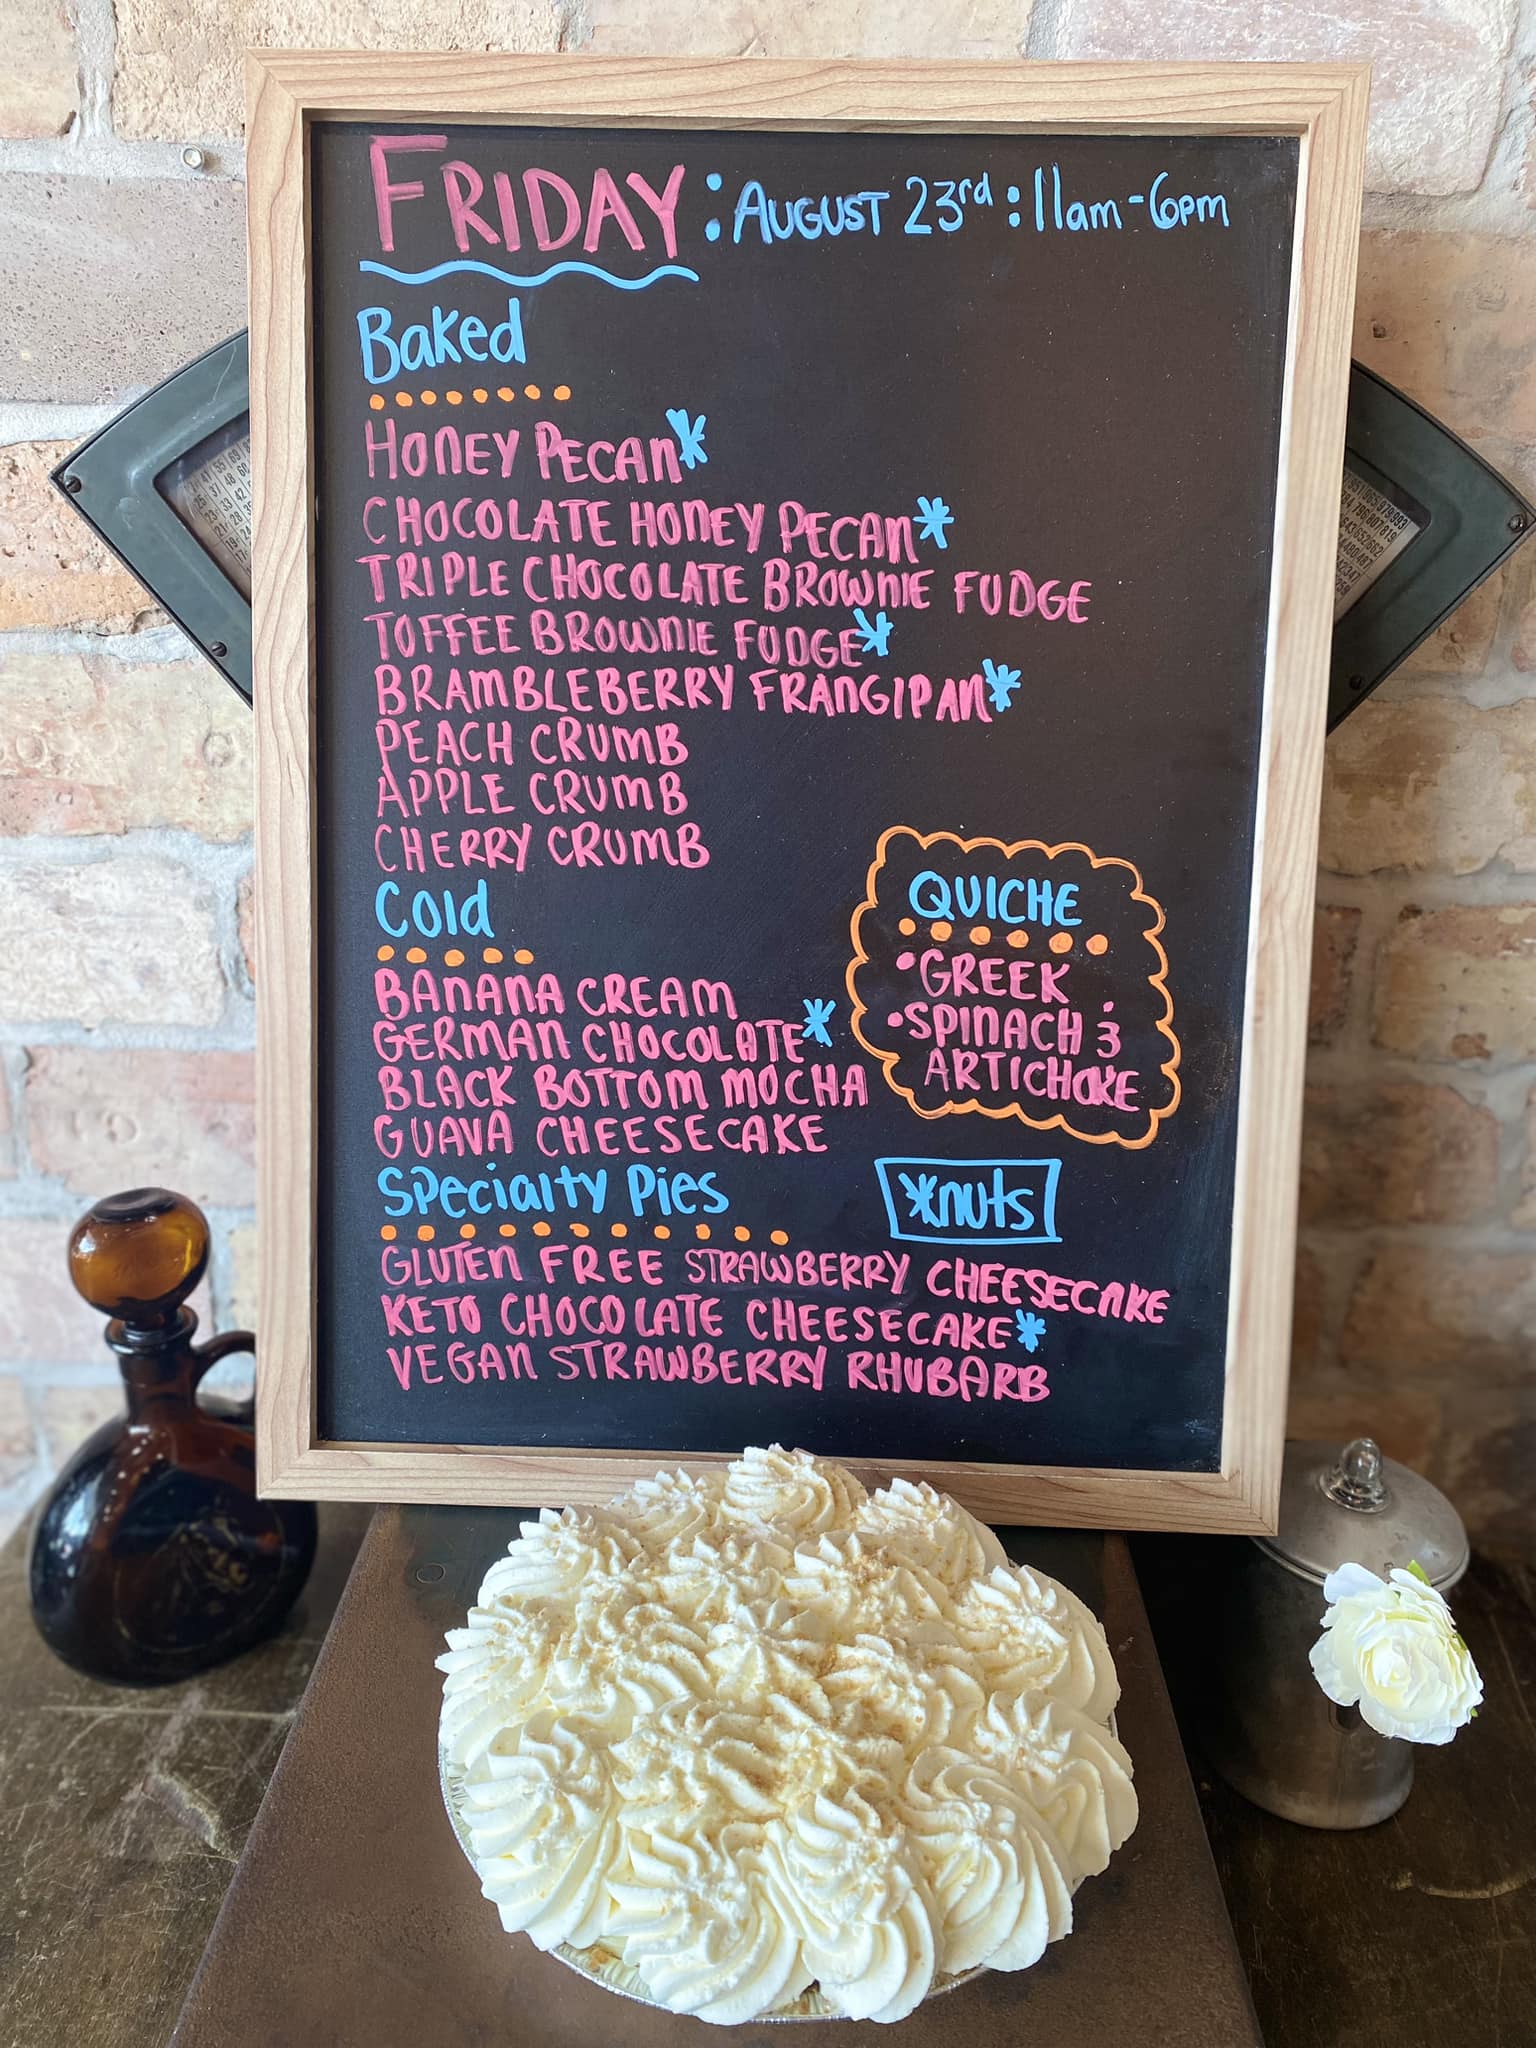 FRIDAY : AUGUST 23rd : 11am-6pm
Baked
HONEY PECAN*
CHOCOLATE HONEY PECAN*
TRIPLE CHOCOLATE BROWNIE FUDGE
TOFFEE BROWNIE FUDGE*
BRAMBLEBERRY FRANGIPAN*
PEACH CRUMB
APPLE CRUMB
CHERRY CRUMB
Cold
BANANA CREAM
GERMAN CHOCOLATE*
BLACK BOTTOM MOCHA
GUAVA CHEESECAKE
QUICHE
•GREEK
•SPINACH &
ARTICHOKE
Specialty Pies
*nuts
GLUTEN FREE STRAWBERRY CHEESECAKE
KETO CHOCOLATE CHEESECAKE*
VEGAN STRAWBERRY RHUBARB